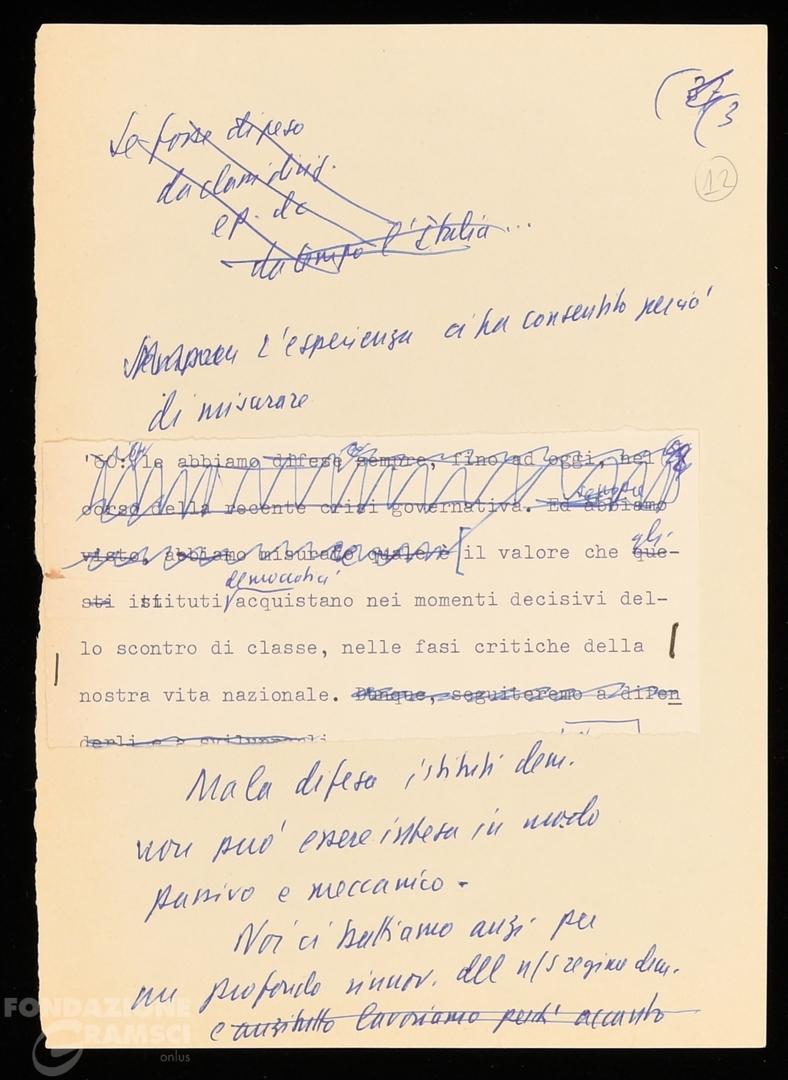 (37/3
12
Se fosse dipeso
da clam. dirig.
e p. dc
da tempo l'Italia...
l'esperienza ci ha consentito perciò
di misurare
'60: le abbiamo difese sempre, fino ad oggi, nel
corso della recente crisi governativa. Ed abbiamo
sempre
visto, abbiamo misurato quale è [il valore che que-
gli
sti istituti acquistano nei momenti decisivi del-
democratici
lo scontro di classe, nelle fasi critiche della
nostra vita nazionale. Dunque, seguiteremo a difen
derli e a svilupparli
Ma la difesa istituti dem.
non può essere intesa in modo
passivo e meccanico -
Noi ci battiamo anzi per
un profondo rinnov. del n/s regime dem.
e anzitutto lavoriamo perché accanto
FONDAZIONE
GRAMSCI
onlus